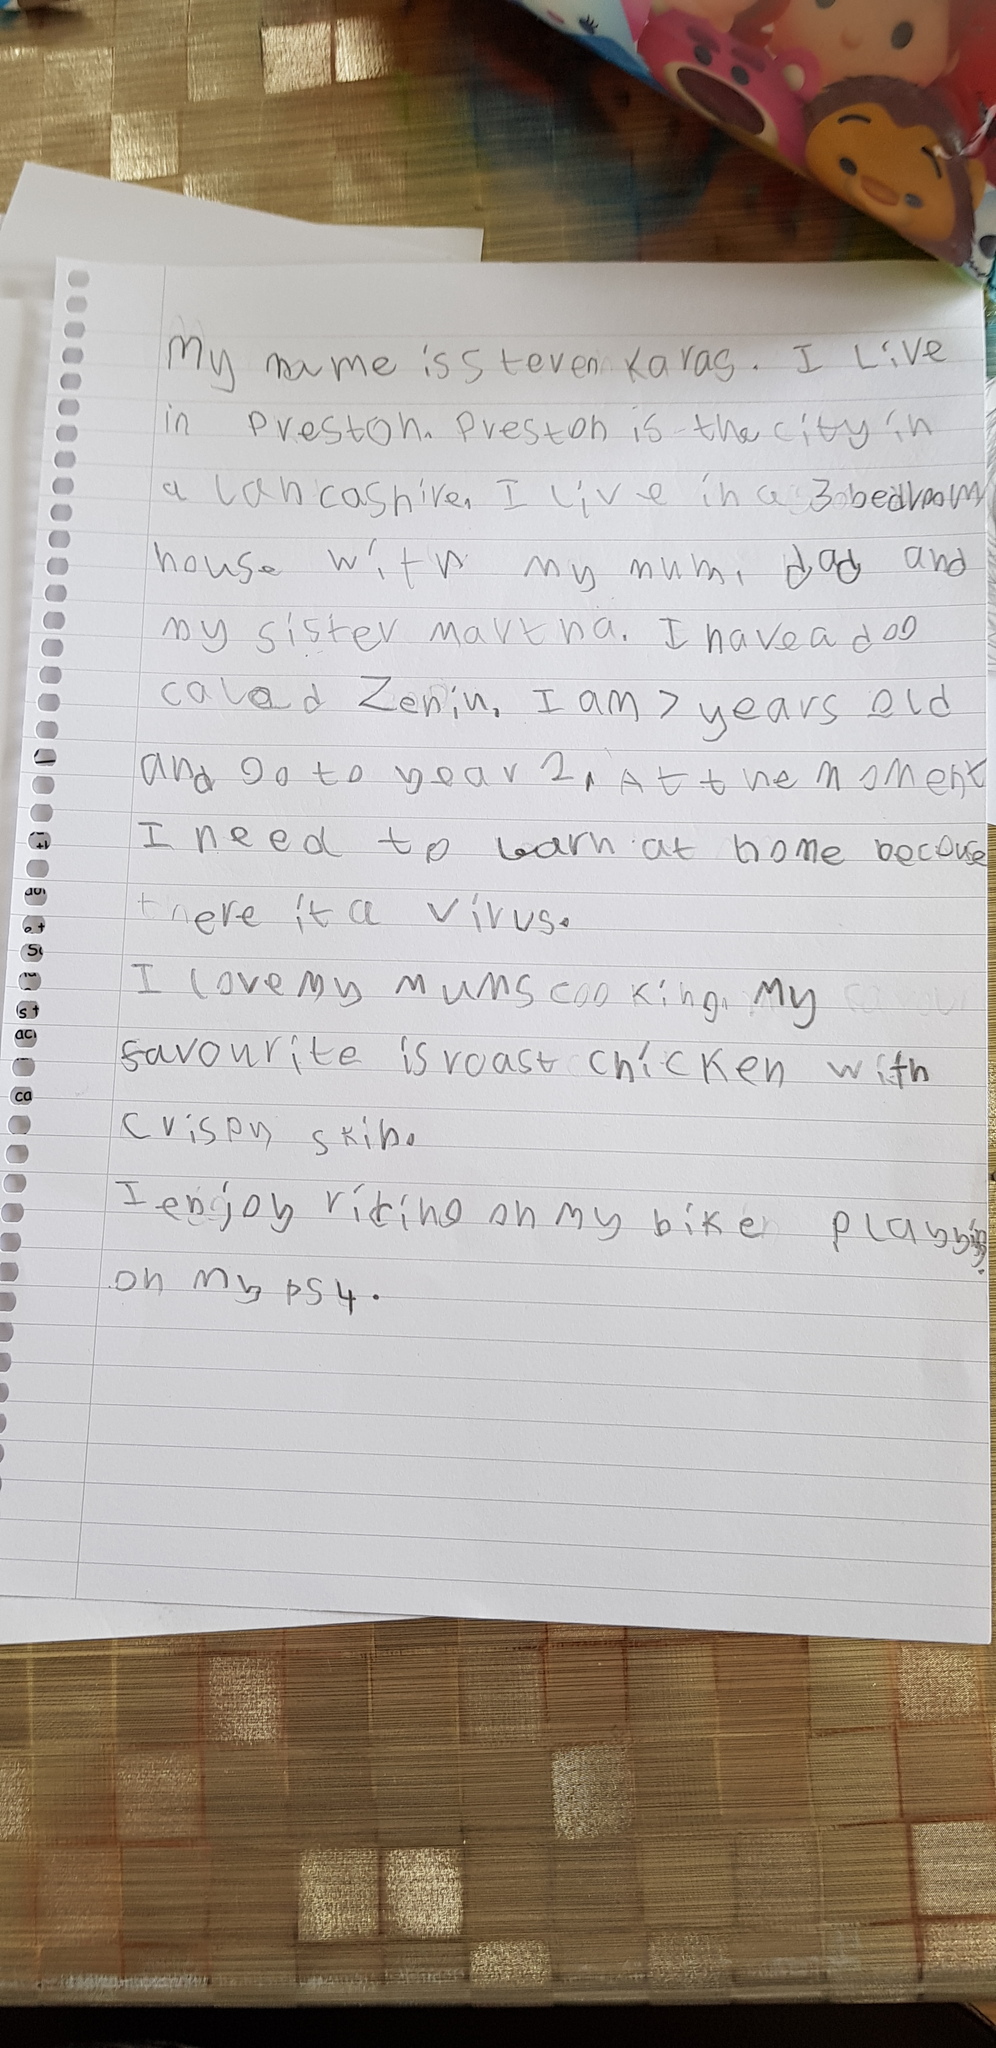 My name is Steven Karas. I Live
in Preston. Preston is the city in
a Lancashire. I live in a 3 bedroom
house with my mum, dad and
my sister martha. I have a dog
caled Zenin. I am 7 years old
and go to year 2. At the moment
I need to learn at home because
there it a virus.
I love my mums cooking. My
favourite is roast chicken with
crispy skin.
I enjoy riting on my bike playying
on my PS4.